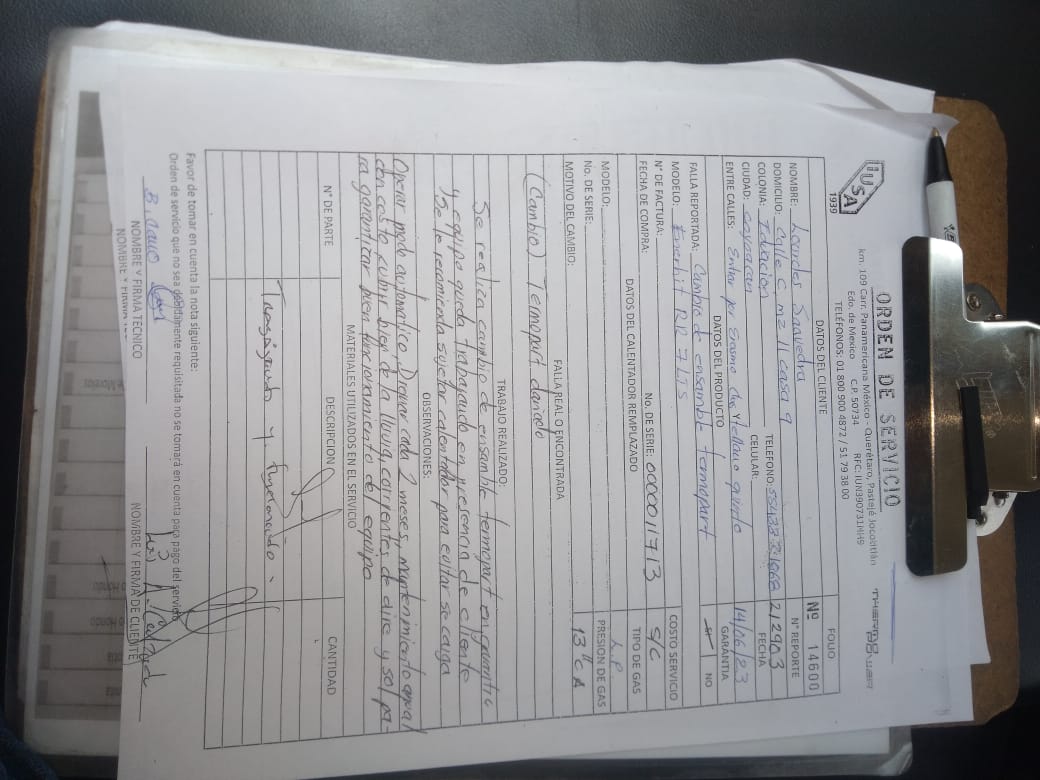 IUSA
1939
ORDEN DE SERVICIO
km. 109 Carr. Panamericana México - Querétaro, Pastejé Jocotitlán
Edo. de México C.P. 50734 RFC: IUN390731NH9
TELÉFONOS: 01 800 900 4872 / 51 79 38 00
DATOS DEL CLIENTE
FOLIO
Nº 14600
NOMBRE: Lourdes Saavedra
N° REPORTE
212903
DOMICILIO: Calle C mz 11 casa 9 TELEFONO:
COLONIA: CELULAR:
FECHA
14/06/23
CIUDAD: Coyoacan
ENTRE CALLES: Entrar por Erasmo Castellanos quinto
GARANTIA
SI NO
DATOS DEL PRODUCTO
FALLA REPORTADA: Cambio de ensamble termopart
MODELO: Enerhit RR 7 LTS
COSTO SERVICIO
S/C
N° DE FACTURA: No. DE SERIE: 0000011713
FECHA DE COMPRA:
TIPO DE GAS
L.P
DATOS DEL CALENTADOR REMPLAZADO
MODELO:
PRESION DE GAS
No. DE SERIE:
MOTIVO DEL CAMBIO:
FALLA REAL O ENCONTRADA
(Cambio) Temopart dañado
TRABAJO REALIZADO:
Se realiza cambio de ensamble termopart en garantia
y equipo queda trabajando en presencia de cliente
Se le recomienda sujetar calentador para evitar se caiga
OBSERVACIONES:
Operar modo automatico, Drenar cada 2 meses, mantenimiento anual
con costo, cubrir bien de la lluvia, corrientes de aire y sol pa-
ra garantizar buen funcionamiento del equipo
MATERIALES UTILIZADOS EN EL SERVICIO
N° DE PARTE DESCRIPCION CANTIDAD
Trabajando y funcionando
Favor de tomar en cuenta la nota siguiente:
Orden de servicio que no sea debidamente requisitada no se tomará en cuenta para pago del servicio
NOMBRE Y FIRMA TECNICO NOMBRE Y FIRMA DE CLIENTE